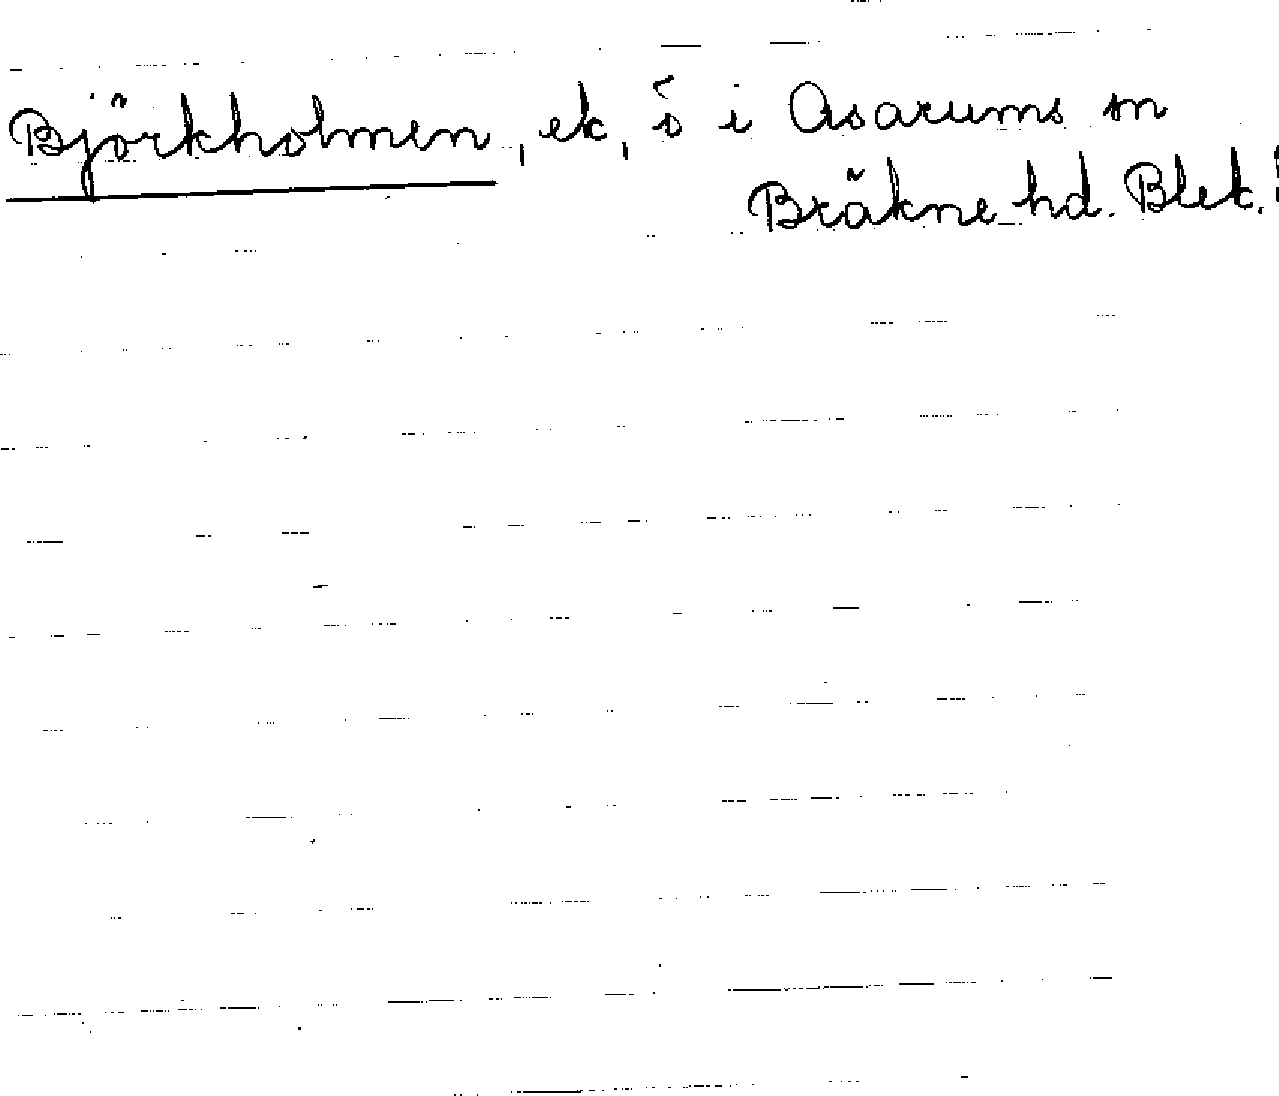 Björkholmen, ek, ö i Asarums sn
Bräkne hd. Blek.